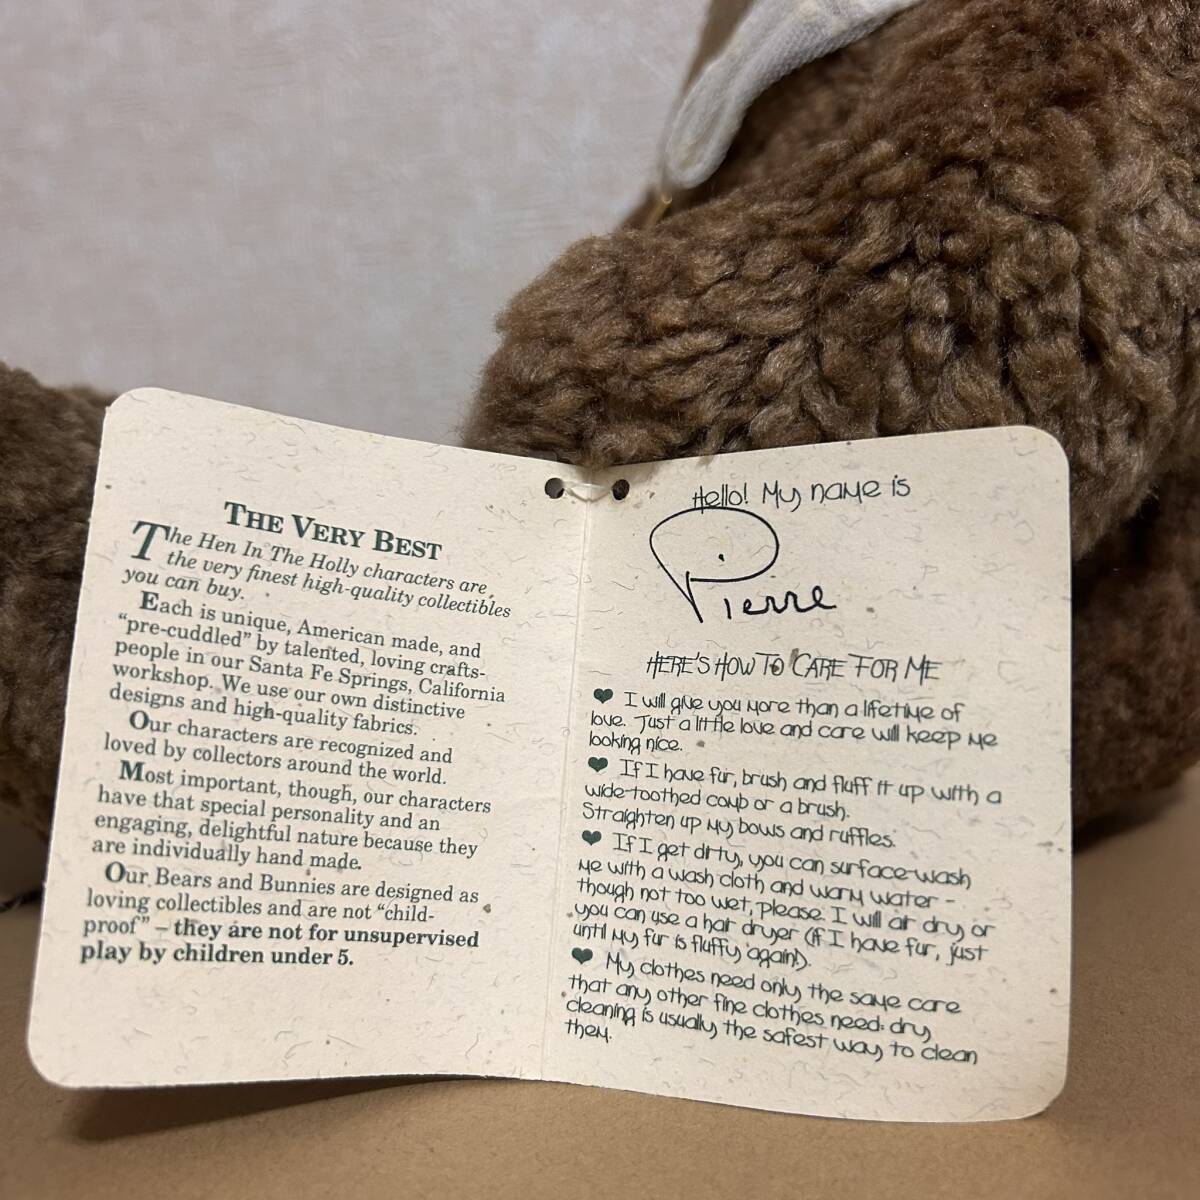 THE VERY BEST
The Hen In The Holly characters are
the very finest high-quality collectibles
you can buy.
Each is unique, American made, and
"pre-cuddled" by talented, loving crafts-
people in our Santa Fe Springs, California
workshop. We use our own distinctive
designs and high-quality fabrics.
Our characters are recognized and
loved by collectors around the world.
Most important, though, our characters
have that special personality and an
engaging, delightful nature because they
are individually hand made.
Our Bears and Bunnies are designed as
loving collectibles and are not "child-
proof" – they are not for unsupervised
play by children under 5.
Hello! My name is
Pierre
HERE'S HOW TO CARE FOR ME
♥ I will give you more than a lifetime of
love. Just a little love and care will keep me
looking nice.
♥ If I have fur, brush and fluff it up with a
wide-toothed comb or a brush.
Straighten up my bows and ruffles.
♥ If I get dirty, you can surface-wash
me with a wash cloth and warm water –
though not too wet, please. I will air dry or
you can use a hair dryer (if I have fur, just
until my fur is fluffy again).
♥ My clothes need only the same care
that any other fine clothes need: dry
cleaning is usually the safest way to clean
them.